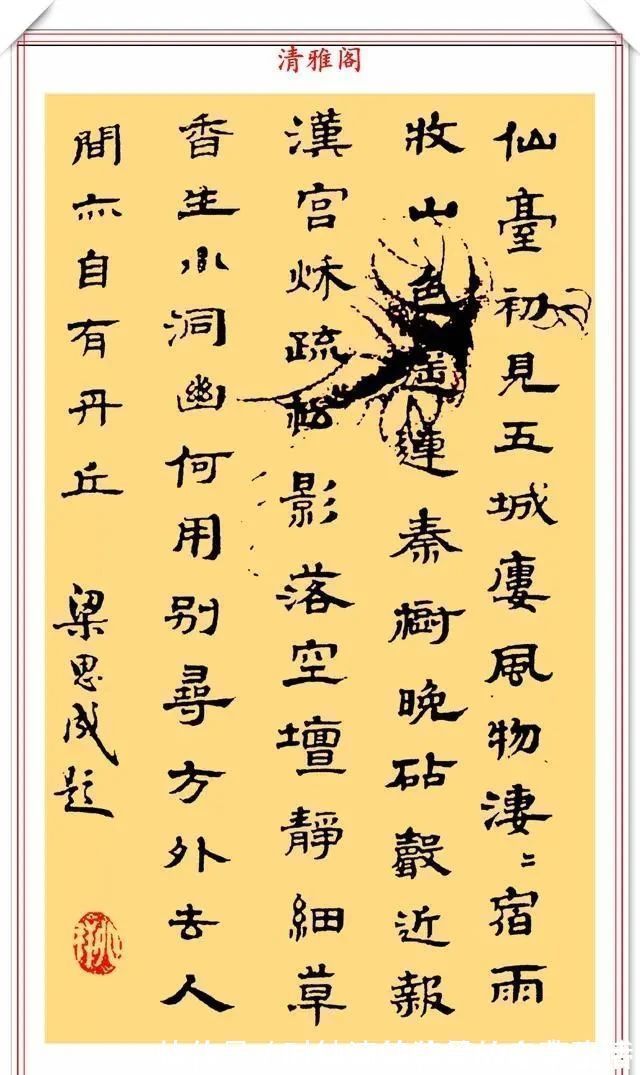 清雅阁
仙臺初見五城廔風物淒〻宿雨
收山色遥連秦樹晚砧聲近報
漢宮秋疏松影落空壇靜細草
香生小洞幽何用别尋方外去人
間亦自有丹丘
梁思成題